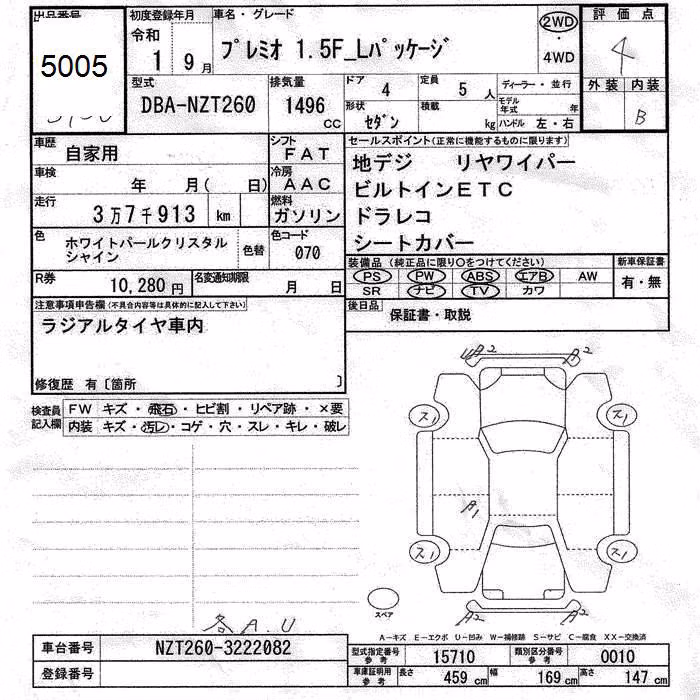 出品番号
5005
初度登録年月
令和
1 9月
車名・グレード
プレミオ 1.5F_Lパッケージ
2WD
・
4WD
評価点
4
外装 内装
B
型式
DBA-NZT260
排気量
1496
cc
ドア
4
定員
5 人
形状
セダン
積載
kg
ディーラー・並行
モデル年式 年
ハンドル 左・右
車歴
自家用
シフト
FAT
車検
年 月( 日)
冷房
AAC
走行
3万7千913 km
燃料
ガソリン
色
ホワイトパールクリスタル
シャイン
色替
色コード
070
R券
10,280円
名変通知期限
月 日
セールスポイント(正常に機能するものに限ります)
地デジ リヤワイパー
ビルトインETC
ドラレコ
シートカバー
装備品 (純正品に限り〇をつけてください)
新車保証書
PS PW ABS エアB AW
SR ナビ TV カワ
有・無
後日品
保証書・取説
注意事項申告欄(不具合内容等は具体的に記入して下さい)
ラジアルタイヤ車内
修復歴 有〔箇所 〕
検査員
記入欄
FW キズ・飛石・ヒビ割・リペア跡・×要
内装 キズ・汚レ・コゲ・穴・スレ・キレ・破レ
A2
ス1
ス1
A1
ス1
ス1
A2
A2
スペア
各A.U
A-キズ E-エクボ U-凹み W-補修跡 S-サビ C-腐食 XX-交換済
車台番号
NZT260-3222082
登録番号
型式指定番号
参考
15710
類別区分番号
参考
0010
車庫証明用
参考
長さ
459 cm
幅
169 cm
高さ
147 cm